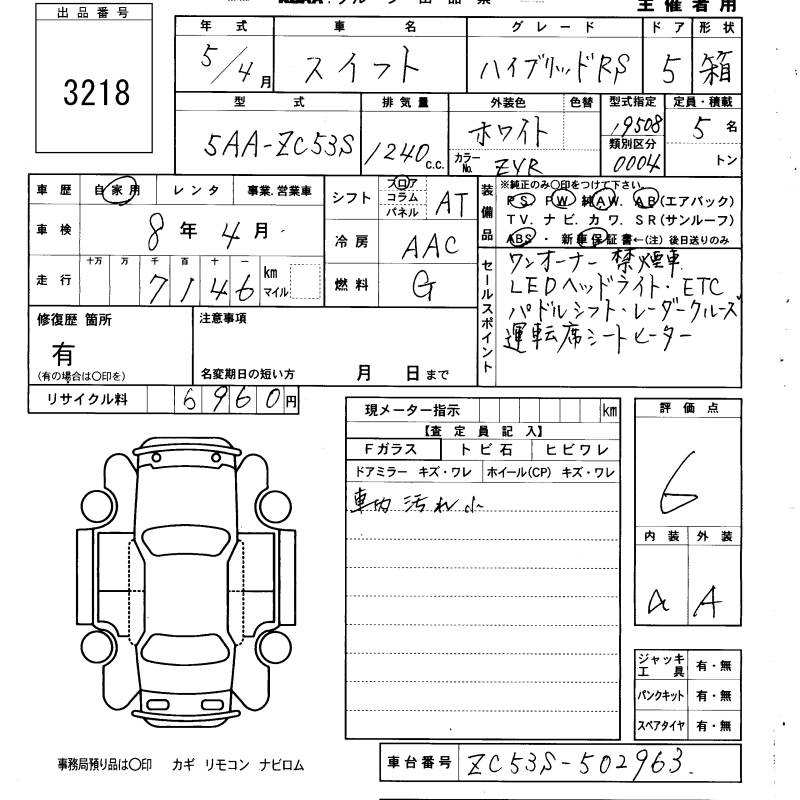 出品番号
3218
主催者用
年式 車名 グレード ドア 形状
5/4月 スイフト ハイブリッドRS 5 箱
型式 排気量 外装色 色替 型式指定 定員・積載
5AA-ZC53S 1240c.c. ホワイト 19508 5名
カラーNo. ZVR 類別区分 0004 トン
車歴 自家用 レンタ 事業.営業車
車検 8年4月
走行 十万 万 千 百 十 一
7146 km マイル
シフト フロア コラム パネル AT
冷房 AAC
燃料 G
装備品 ※純正のみ〇印をつけて下さい。
PS PW 純AW. AB(エアバック)
TV. ナビ. カワ. SR(サンルーフ)
ABS ・ 新車保証書←(注) 後日送りのみ
セールスポイント
ワンオーナー 禁煙車
LEDヘッドライト・ETC
パドルシフト・レーダークルーズ
運転席シートヒーター
修復歴 箇所
有
(有の場合は〇印を)
注意事項
名変期日の短い方 月 日まで
リサイクル料 6960円
現メーター指示 km
【査定員記入】
Fガラス トビ石 ヒビワレ
ドアミラー キズ・ワレ ホイール(CP) キズ・ワレ
車内汚れ小
評価点
6
内装 外装
a A
ジャッキ工具 有・無
パンクキット 有・無
スペアタイヤ 有・無
事務局預り品は〇印 カギ リモコン ナビロム
車台番号 ZC53S-502963.